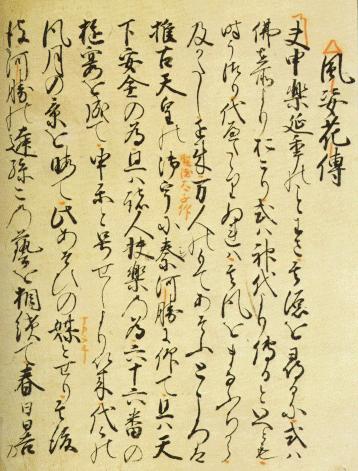 風姿花傳
夫申樂延年のことわざ其源を尋るに或は
佛在所よりおこり或は神代より傳ると云とも
時うつり代へだゝりぬれは其風をまなふちから
及ひかたし近来万人のもてあそふところは
推古天皇の御宇に秦河勝に仰て且は天
下安全の為且は諸人快樂の為六十六番の
遊宴を成て申楽と号せしより以来代々の人
風月の景を假て此あそひの媒とせり其後
彼河勝の遠孫この藝を相續て春日日吉